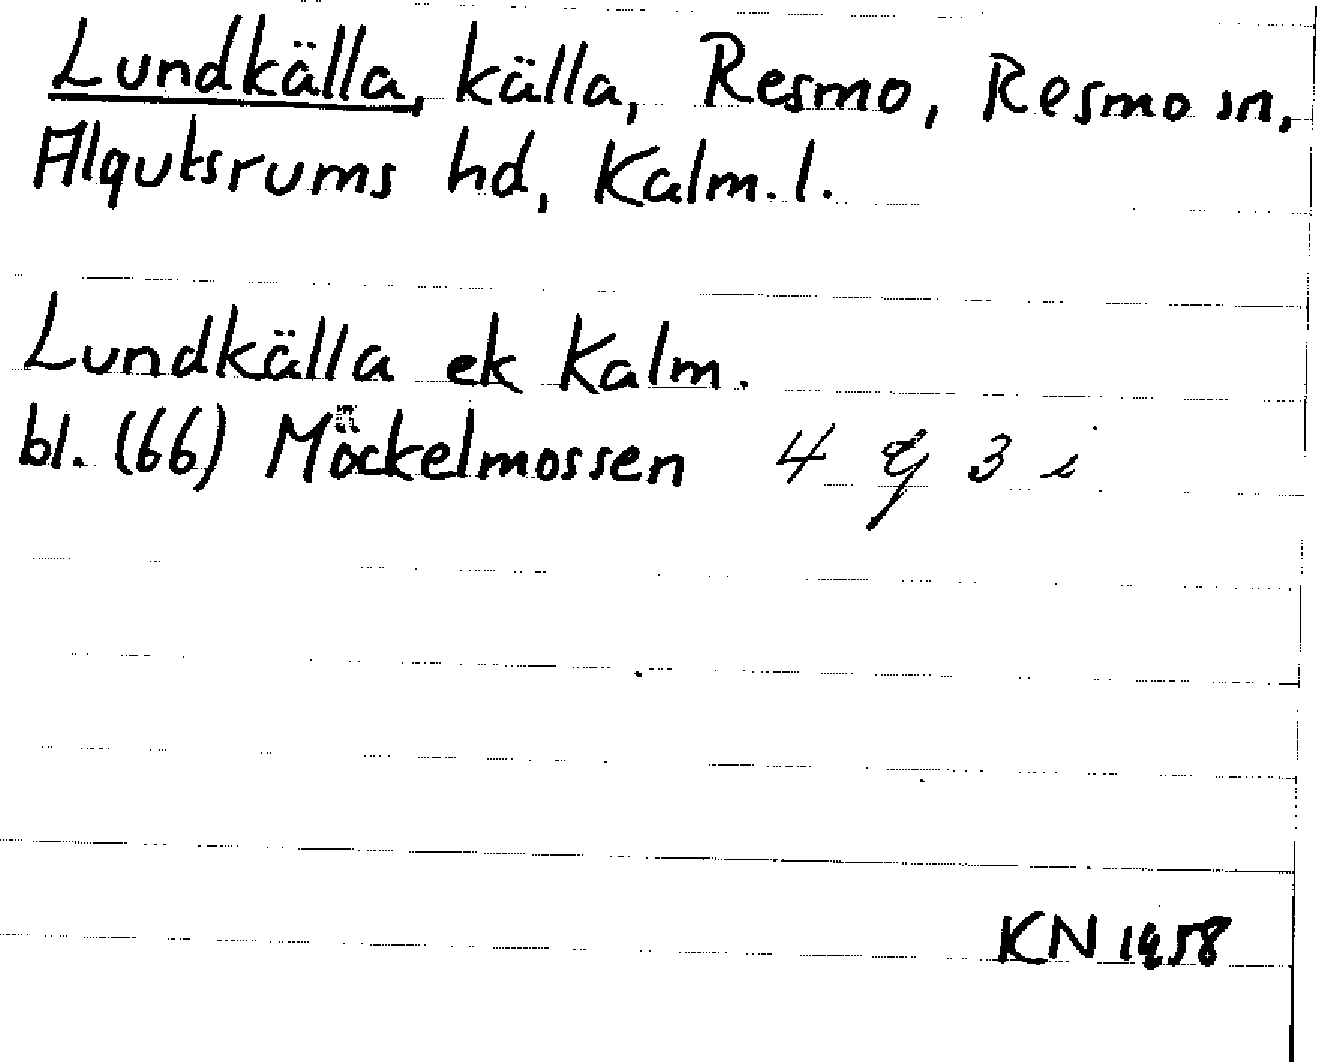 Lundkälla, källa, Resmo, Resmo sn,
Algutsrums hd, Kalm. l.
Lundkälla ek Kalm.
bl. (66) Möckelmossen 4 g 3 i
KN 1958